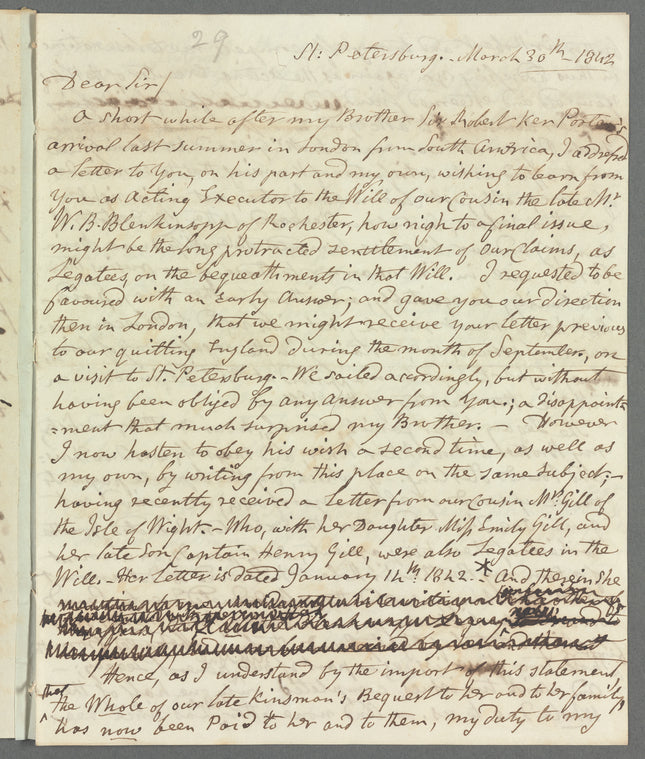 29
St: Petersburg. March 30th 1842
Dear Sir/
A short while after my Brother Sir Robert Ker Porter's
arrival last summer in London from South America, I addressed
a letter to You, on his part and my own, wishing to learn from
You as Acting Executor to the Will of our Cousin the late Mr
W. B. Blenkinsopp of Rochester, how nigh to a final issue,
might be the long protracted senttlement of our Claims, as
Legatees, on the bequeathments in that Will. I requested to be
favoured with an early Answer; and gave you our direction
then in London, that we might receive your letter previous
to our quitting England during the month of September, on
a visit to St. Petersburg. - We sailed accordingly, but without
having been obliged by any answer from You; a disappoint=
=ment that much surprised my Brother. - However
I now hasten to obey his wish a second time, as well as
my own, by writing from this place on the same subject: -
having recently received a Letter from our Cousin Mrs Gill of
the Isle of Wight. - Who, with her Daughter Miss Emily Gill, and
her late Son Captain Henry Gill, were also Legatees in the
Will. - Her letter is dated January 14th 1842. * And therein she
Hence, as I understand by the import of this statement,
that
the Whole of our late Kinsman's Bequest to her and to her family,
has now been Paid to her and to them, my duty to my